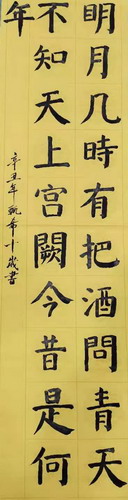 明月几時有把酒問青天
不知天上宫闕今昔是何
年
辛丑年甄希十歲書